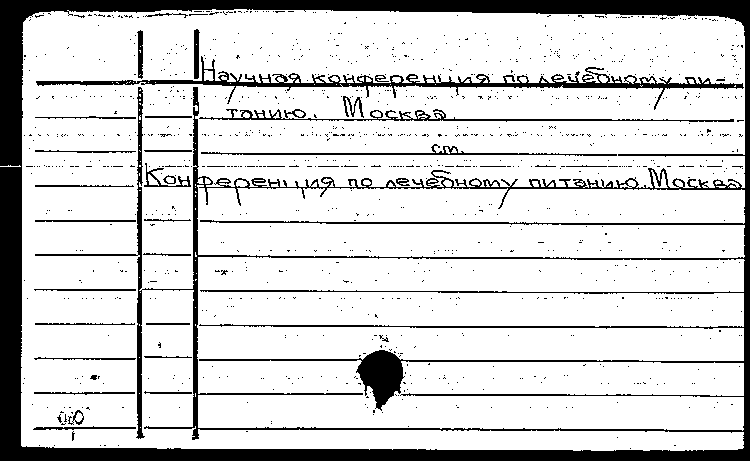 Научная конференция по лечебному пи-
танию. Москва.
см.
Конференция по лечебному питанию. Москва